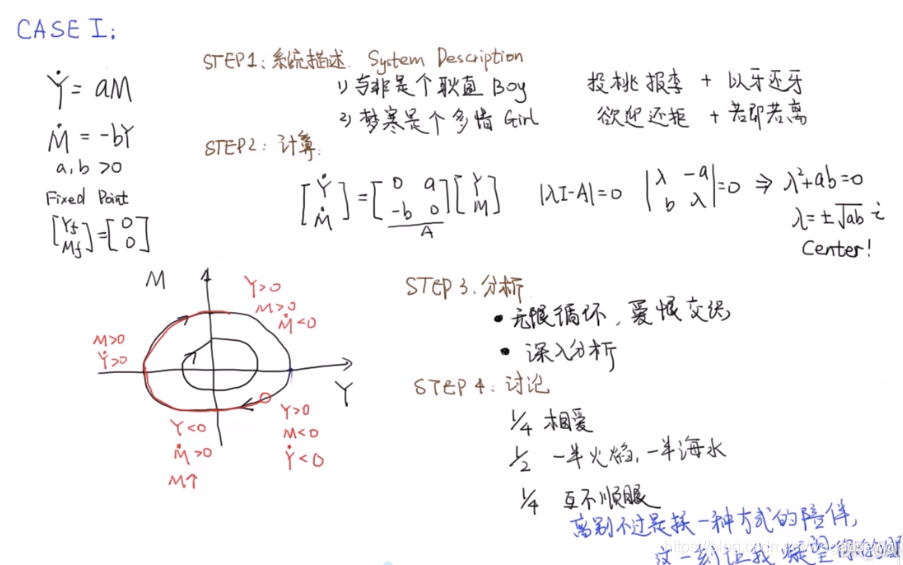 CASE I:
Ẏ = aM
Ṁ = -bY
a, b > 0
Fixed Point
[Yf Mf] = [0 0]
STEP1: 系统描述. System Description
1) 与非是个耿直 Boy 投桃报李 + 以牙还牙
2) 梦寒是个多情 Girl 欲迎还拒 + 若即若离
STEP2: 计算:
[Ẏ Ṁ] = [0 a -b 0] [Y M] |λI-A|=0 |λ -a b λ|=0 ⇒ λ²+ab=0
A
λ=±√ab i
Center!
M
Y>0
M>0
Ṁ<0
M>0
Ẏ>0
Y
Y<0
Ṁ>0
M↑
Y>0
M<0
Ẏ<0
STEP 3. 分析
• 无限循环, 爱恨交织
• 深入分析
STEP 4: 讨论
1/4 相爱
1/2 一半火焰, 一半海水
1/4 互不顺眼
离别不过是换一种方式的陪伴,
这一刻让我凝望你的
https://blog.csdn.net